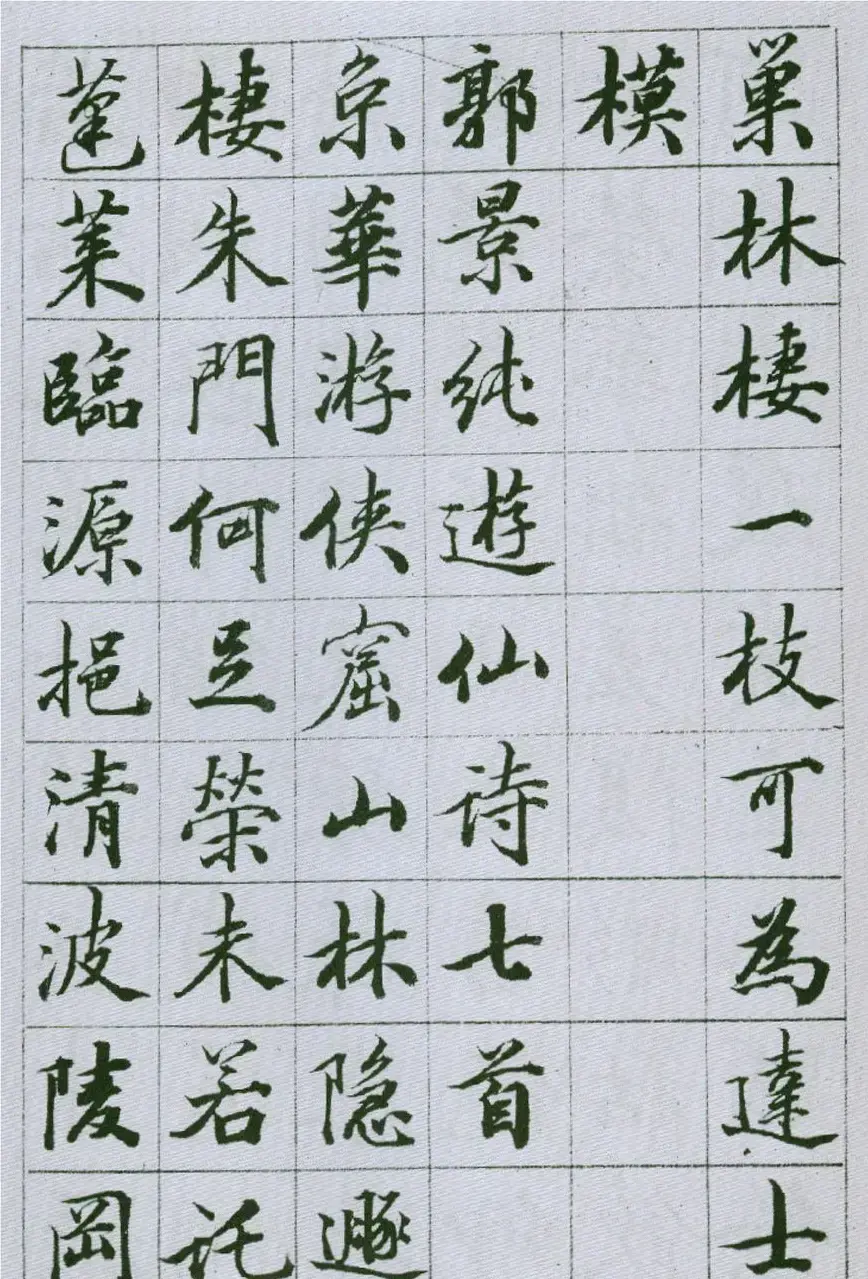 巢林棲一枝可為達士
模
郭景純遊仙诗七首
京華游俠窟山林隐遯
棲朱門何足榮未若託
蓬萊臨源挹清波陵岡